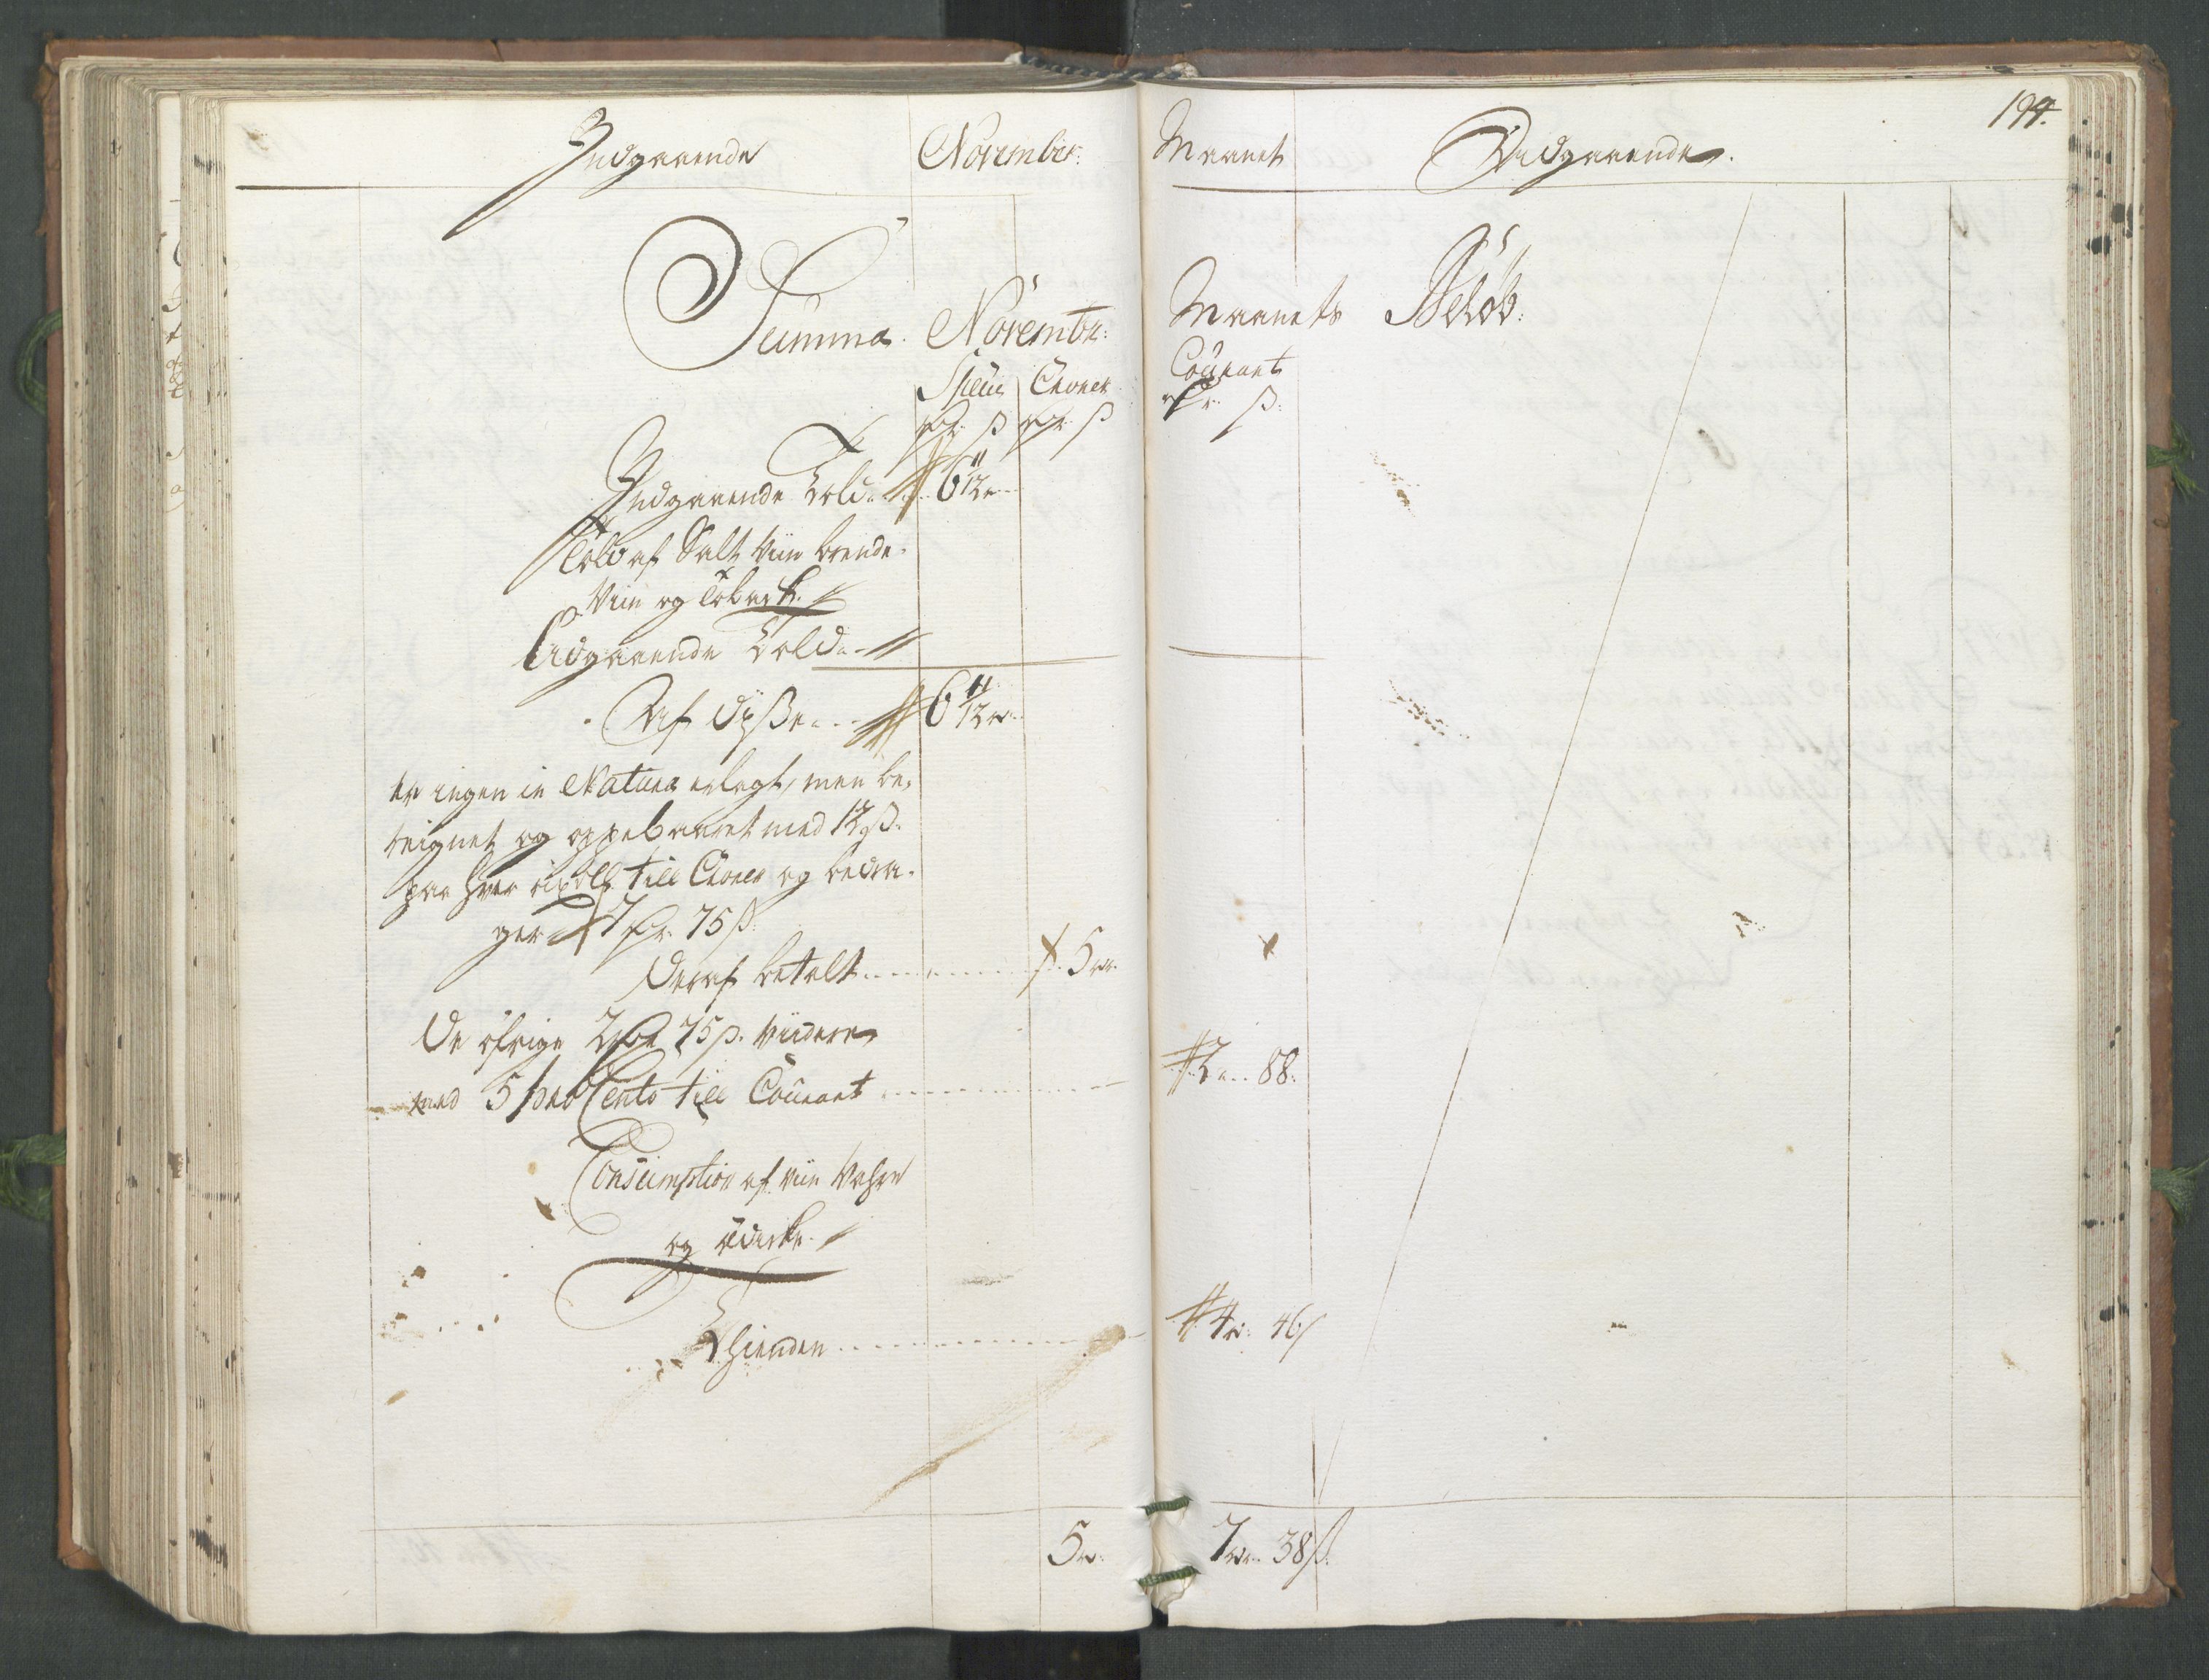 Indgaaende November:
Maanet Udgaaende.
194.
Summa. Novembr: Maanets Beløb:
Speci Croner Courant
rdr ß rdr ß rdr ß:
Indgaaende Told 6 11/12
Told af Salt Viin brende-
Viin og Toback.
Udgaaende Told
Af diße 6 11/12
er ingen in Natura erlagt, men be-
reignet og oppebaaret med 12 ß.
paa hver till Croner og bedra-
ger 7 rdr. 75 ß.
Deraf betalt 5
De øfrige 2 rdr 75 ß. Viidere
med 5 pro Cento till Courant 2 88:
Consumption af Viin Vahre
og
Thienden 4 46
5 7 38 ß.